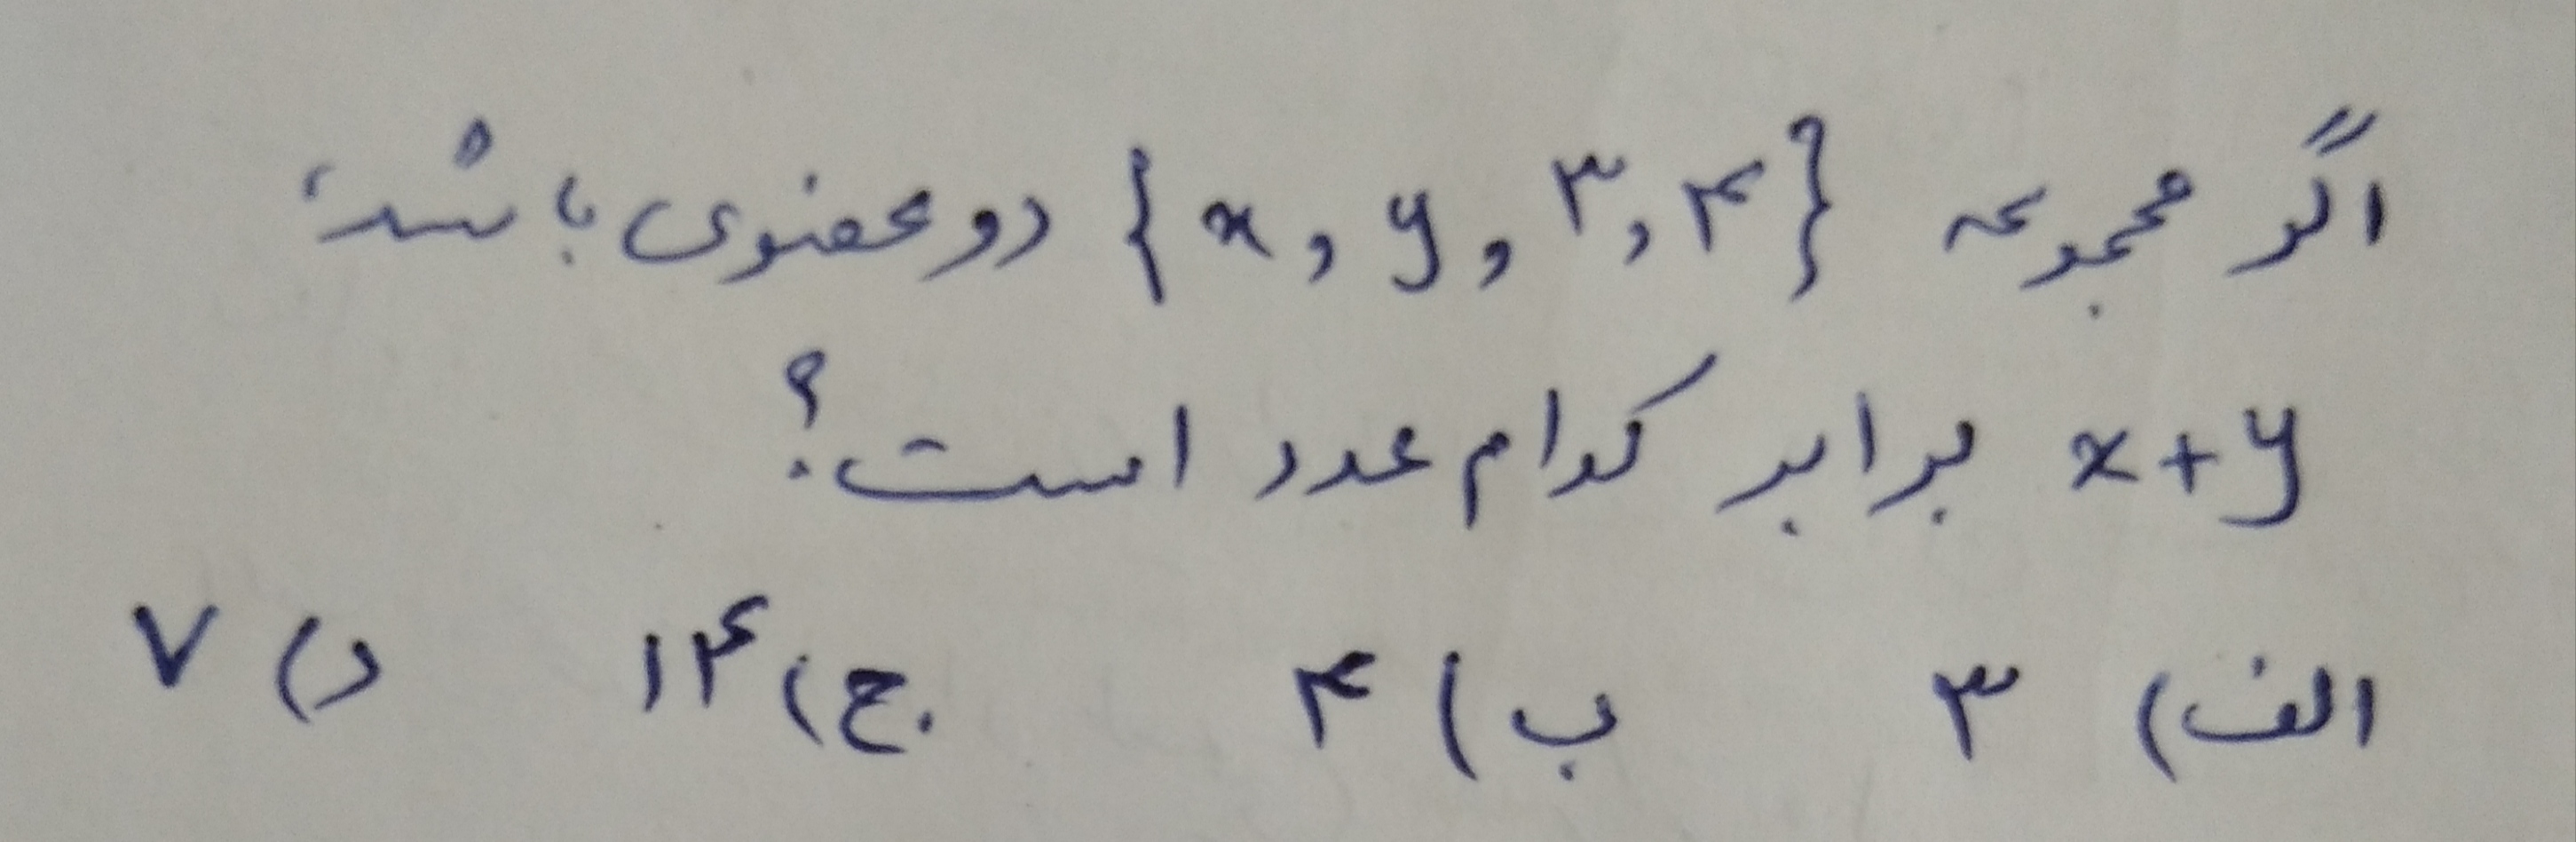 اگر مجموعه {x, y, ۳, ۴} دو عضوی باشد،
x+y برابر کدام عدد است؟
الف) ۳ ب) ۴ ج) ۱۴ د) ۷